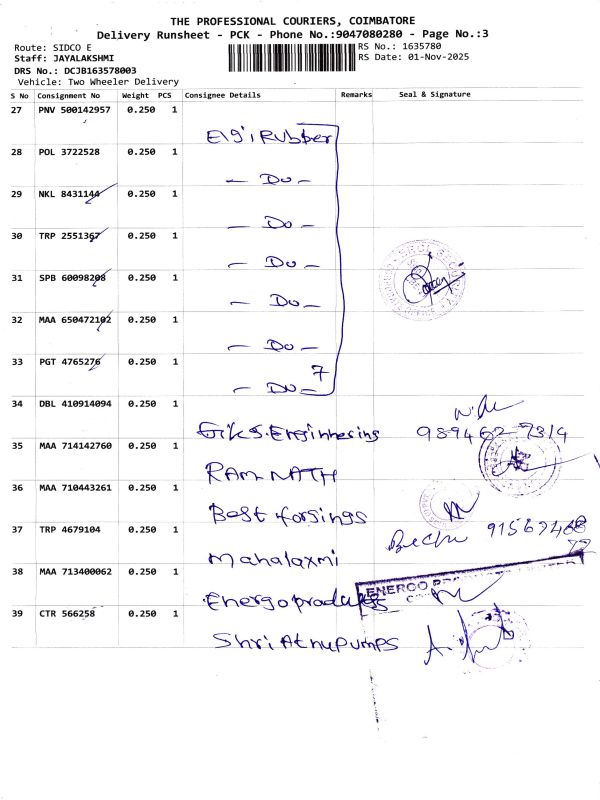 THE PROFESSIONAL COURIERS, COIMBATORE
Delivery Runsheet - PCK - Phone No.:9047080280 - Page No.:3
Route: SIDCO E
RS No.: 1635780
Staff: JAYALAKSHMI
RS Date: 01-Nov-2025
DRS No.: DCJB163578003
Vehicle: Two Wheeler Delivery
S No Consignment No Weight PCS Consignee Details Remarks Seal & Signature
27 PNV 500142957 0.250 1
Elgi Rubber
28 POL 3722528 0.250 1
— Do —
29 NKL 8431144 0.250 1
— Do —
30 TRP 2551367 0.250 1
— Do —
31 SPB 60098208 0.250 1
— Do —
32 MAA 650472102 0.250 1
— Do —
33 PGT 4765276 0.250 1
7
— Do —
34 DBL 410914094 0.250 1
G.K.S. Enginnering
35 MAA 714142760 0.250 1
RAM NATH
36 MAA 710443261 0.250 1
Best forgings
37 TRP 4679104 0.250 1
Mahalaxmi
38 MAA 713400062 0.250 1
ENERGO
Energo products
39 CTR 566258 0.250 1
Shri Athu Pumps